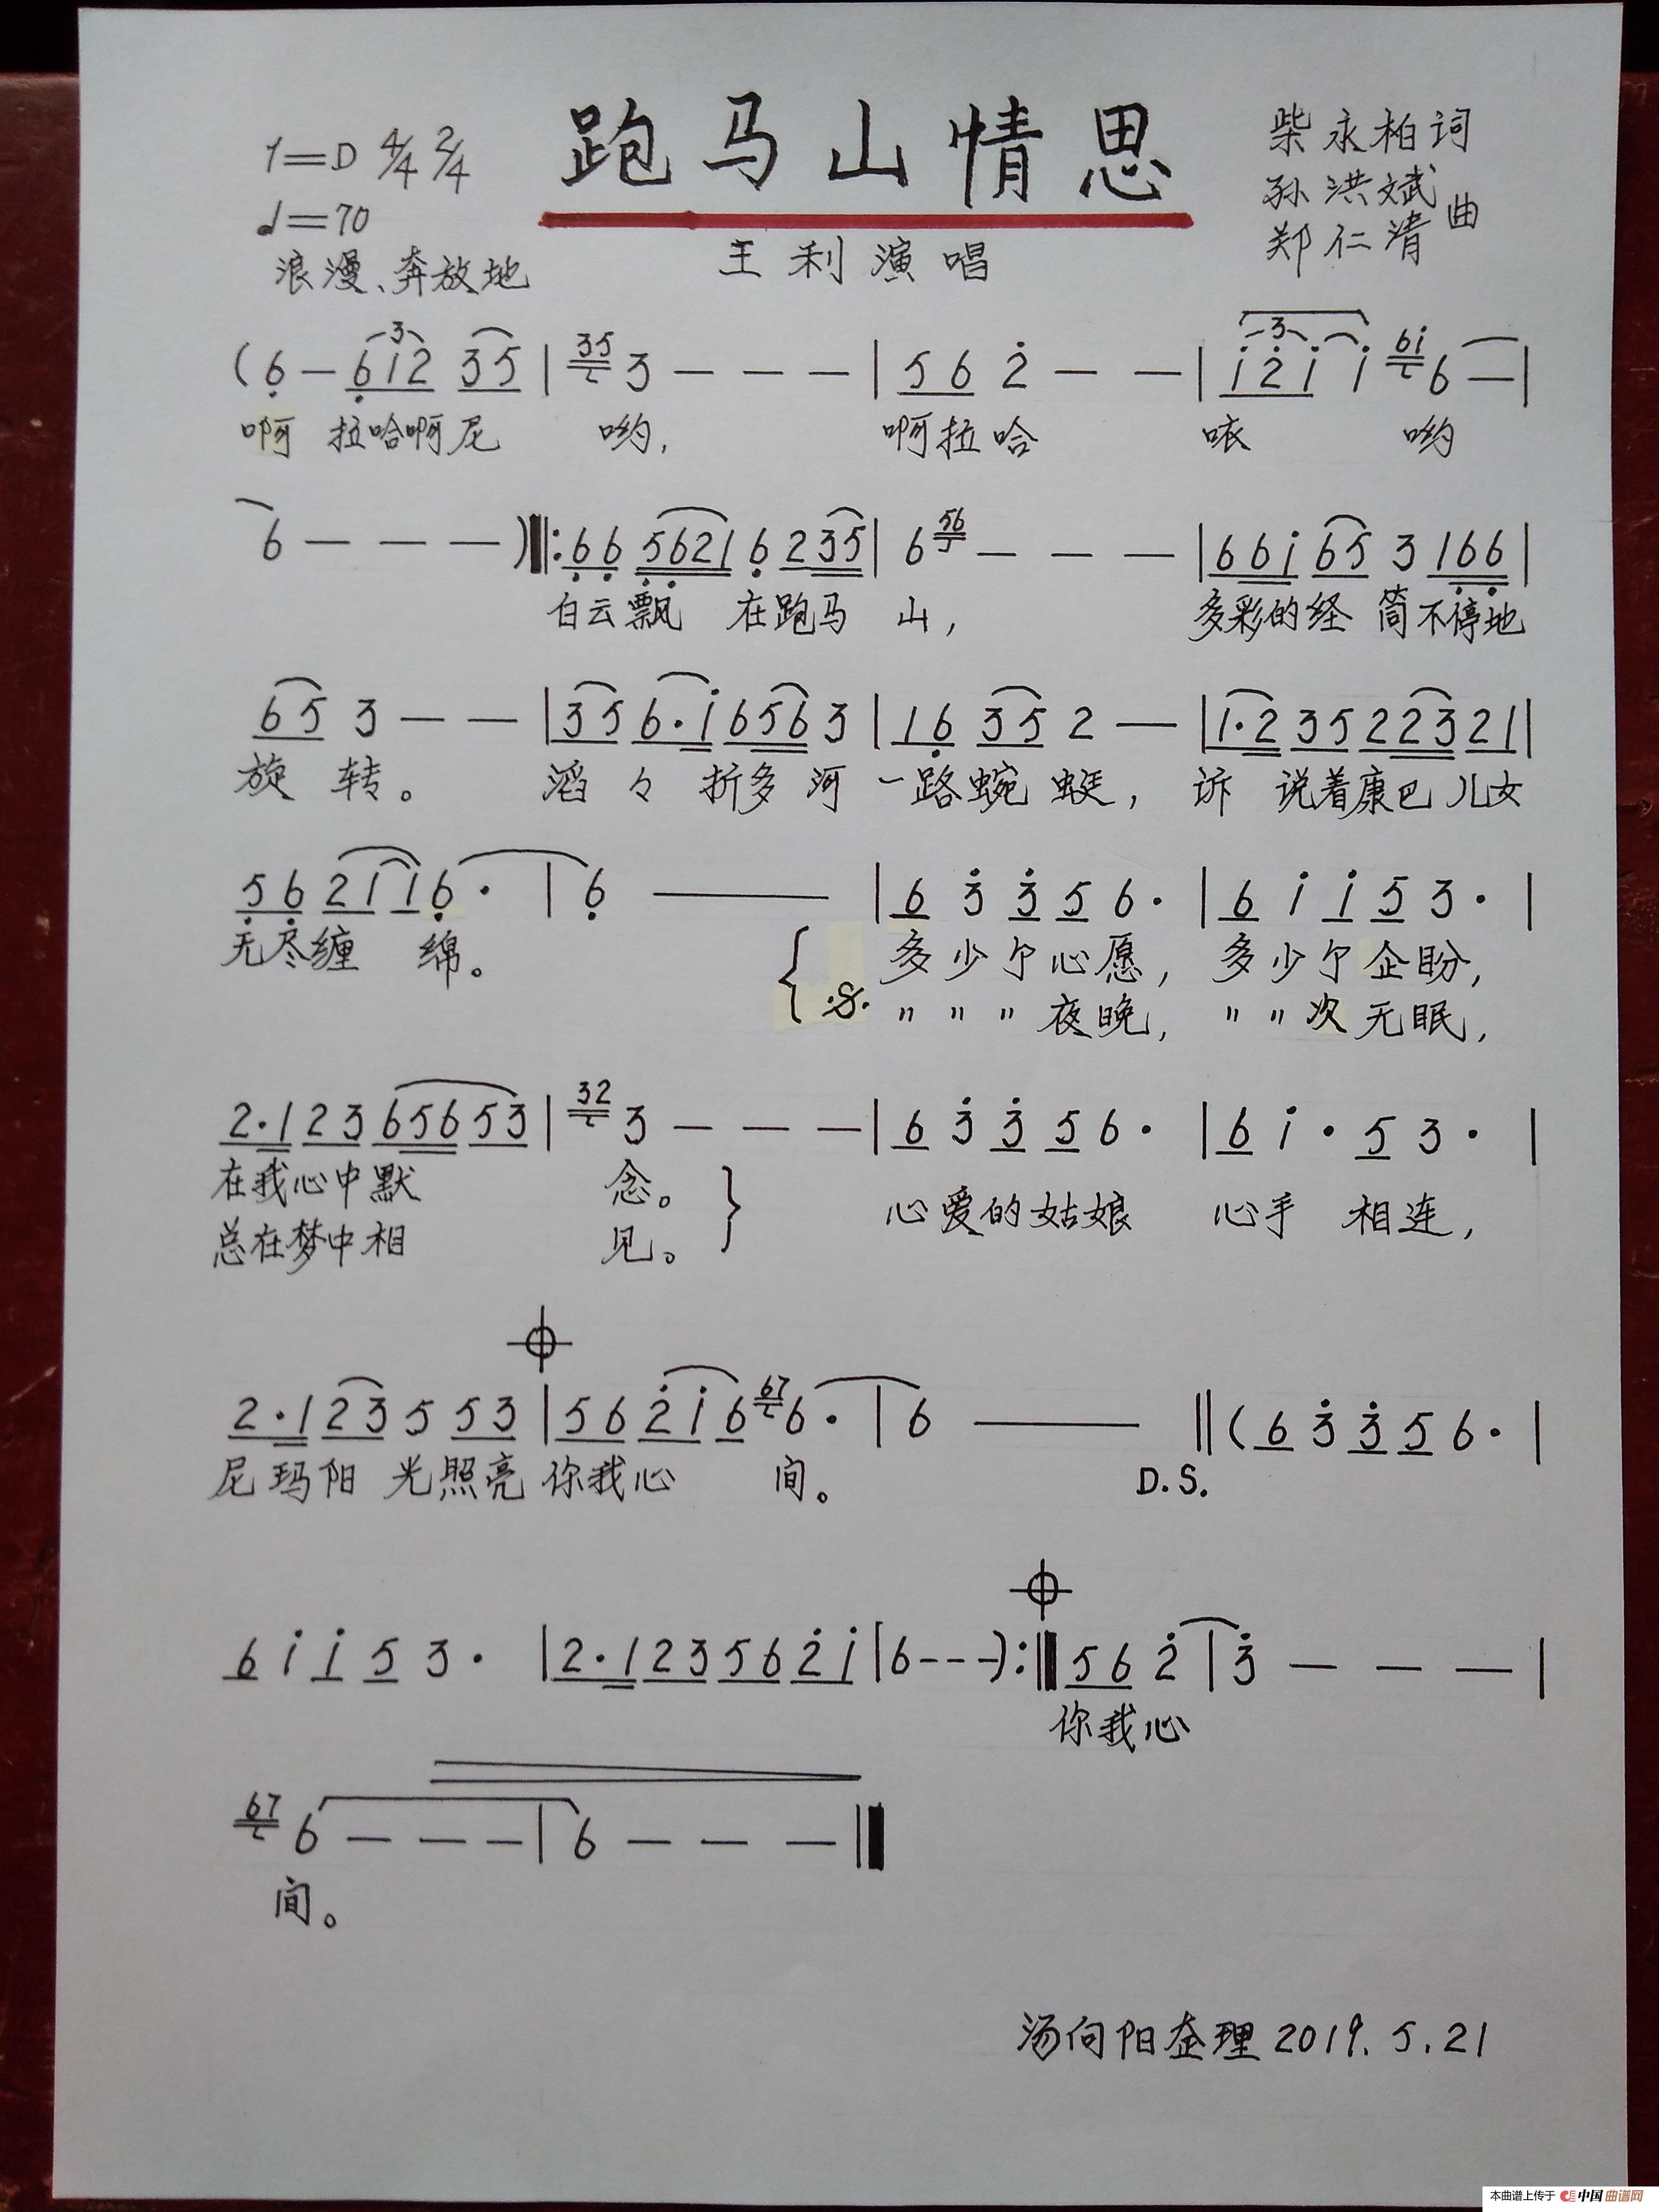 跑马山情思
1=D 4/4 2/4
♩=70
浪漫、奔放地
王利演唱
柴永柏词
孙洪斌
郑仁清 曲
(6 — 612 35 | 35 3 — — — | 56 2 — — | 121 1 61 6 — |
啊 拉哈啊尼 哟, 啊拉哈 咴 哟
6 — — — ) ‖: 66 5621 6 235 | 6 56 — — — | 661 65 3 166 |
白云飘 在跑马 山, 多彩的经 筒不停地
65 3 — — | 35 6·1 656 3 | 16 35 2 — | 1·2 35 223 21 |
旋 转。 滔々折多 河 一路蜿蜓, 诉 说着康巴儿女
56 21 16· | 6 — | 6 3 3 5 6· | 6 1 1 5 3· |
无尽缠 绵。 { 多少个心愿, 多少个企盼,
·S· 〃 〃 〃 夜晚, 〃 〃 次无眠,
2·1 23 656 53 | 32 3 — — — | 6 3 3 5 6· | 6 1· 5 3· |
在我心中默 念。 } 心爱的姑娘 心手 相连,
总在梦中相 见。
2·1 23 5 53 | 56 21 6 67 6· | 6 — ‖ (6 3 3 5 6· |
尼玛阳 光照亮 你我心 间。 D.S.
6 1 1 5 3· | 2·1 23 56 21 | 6 - - -) :‖ 56 2 | 3 — — — |
你我心
67 6 — — — | 6 — — — ‖
间。
汤向阳整理 2019.5.21
本曲谱上传于 中国曲谱网